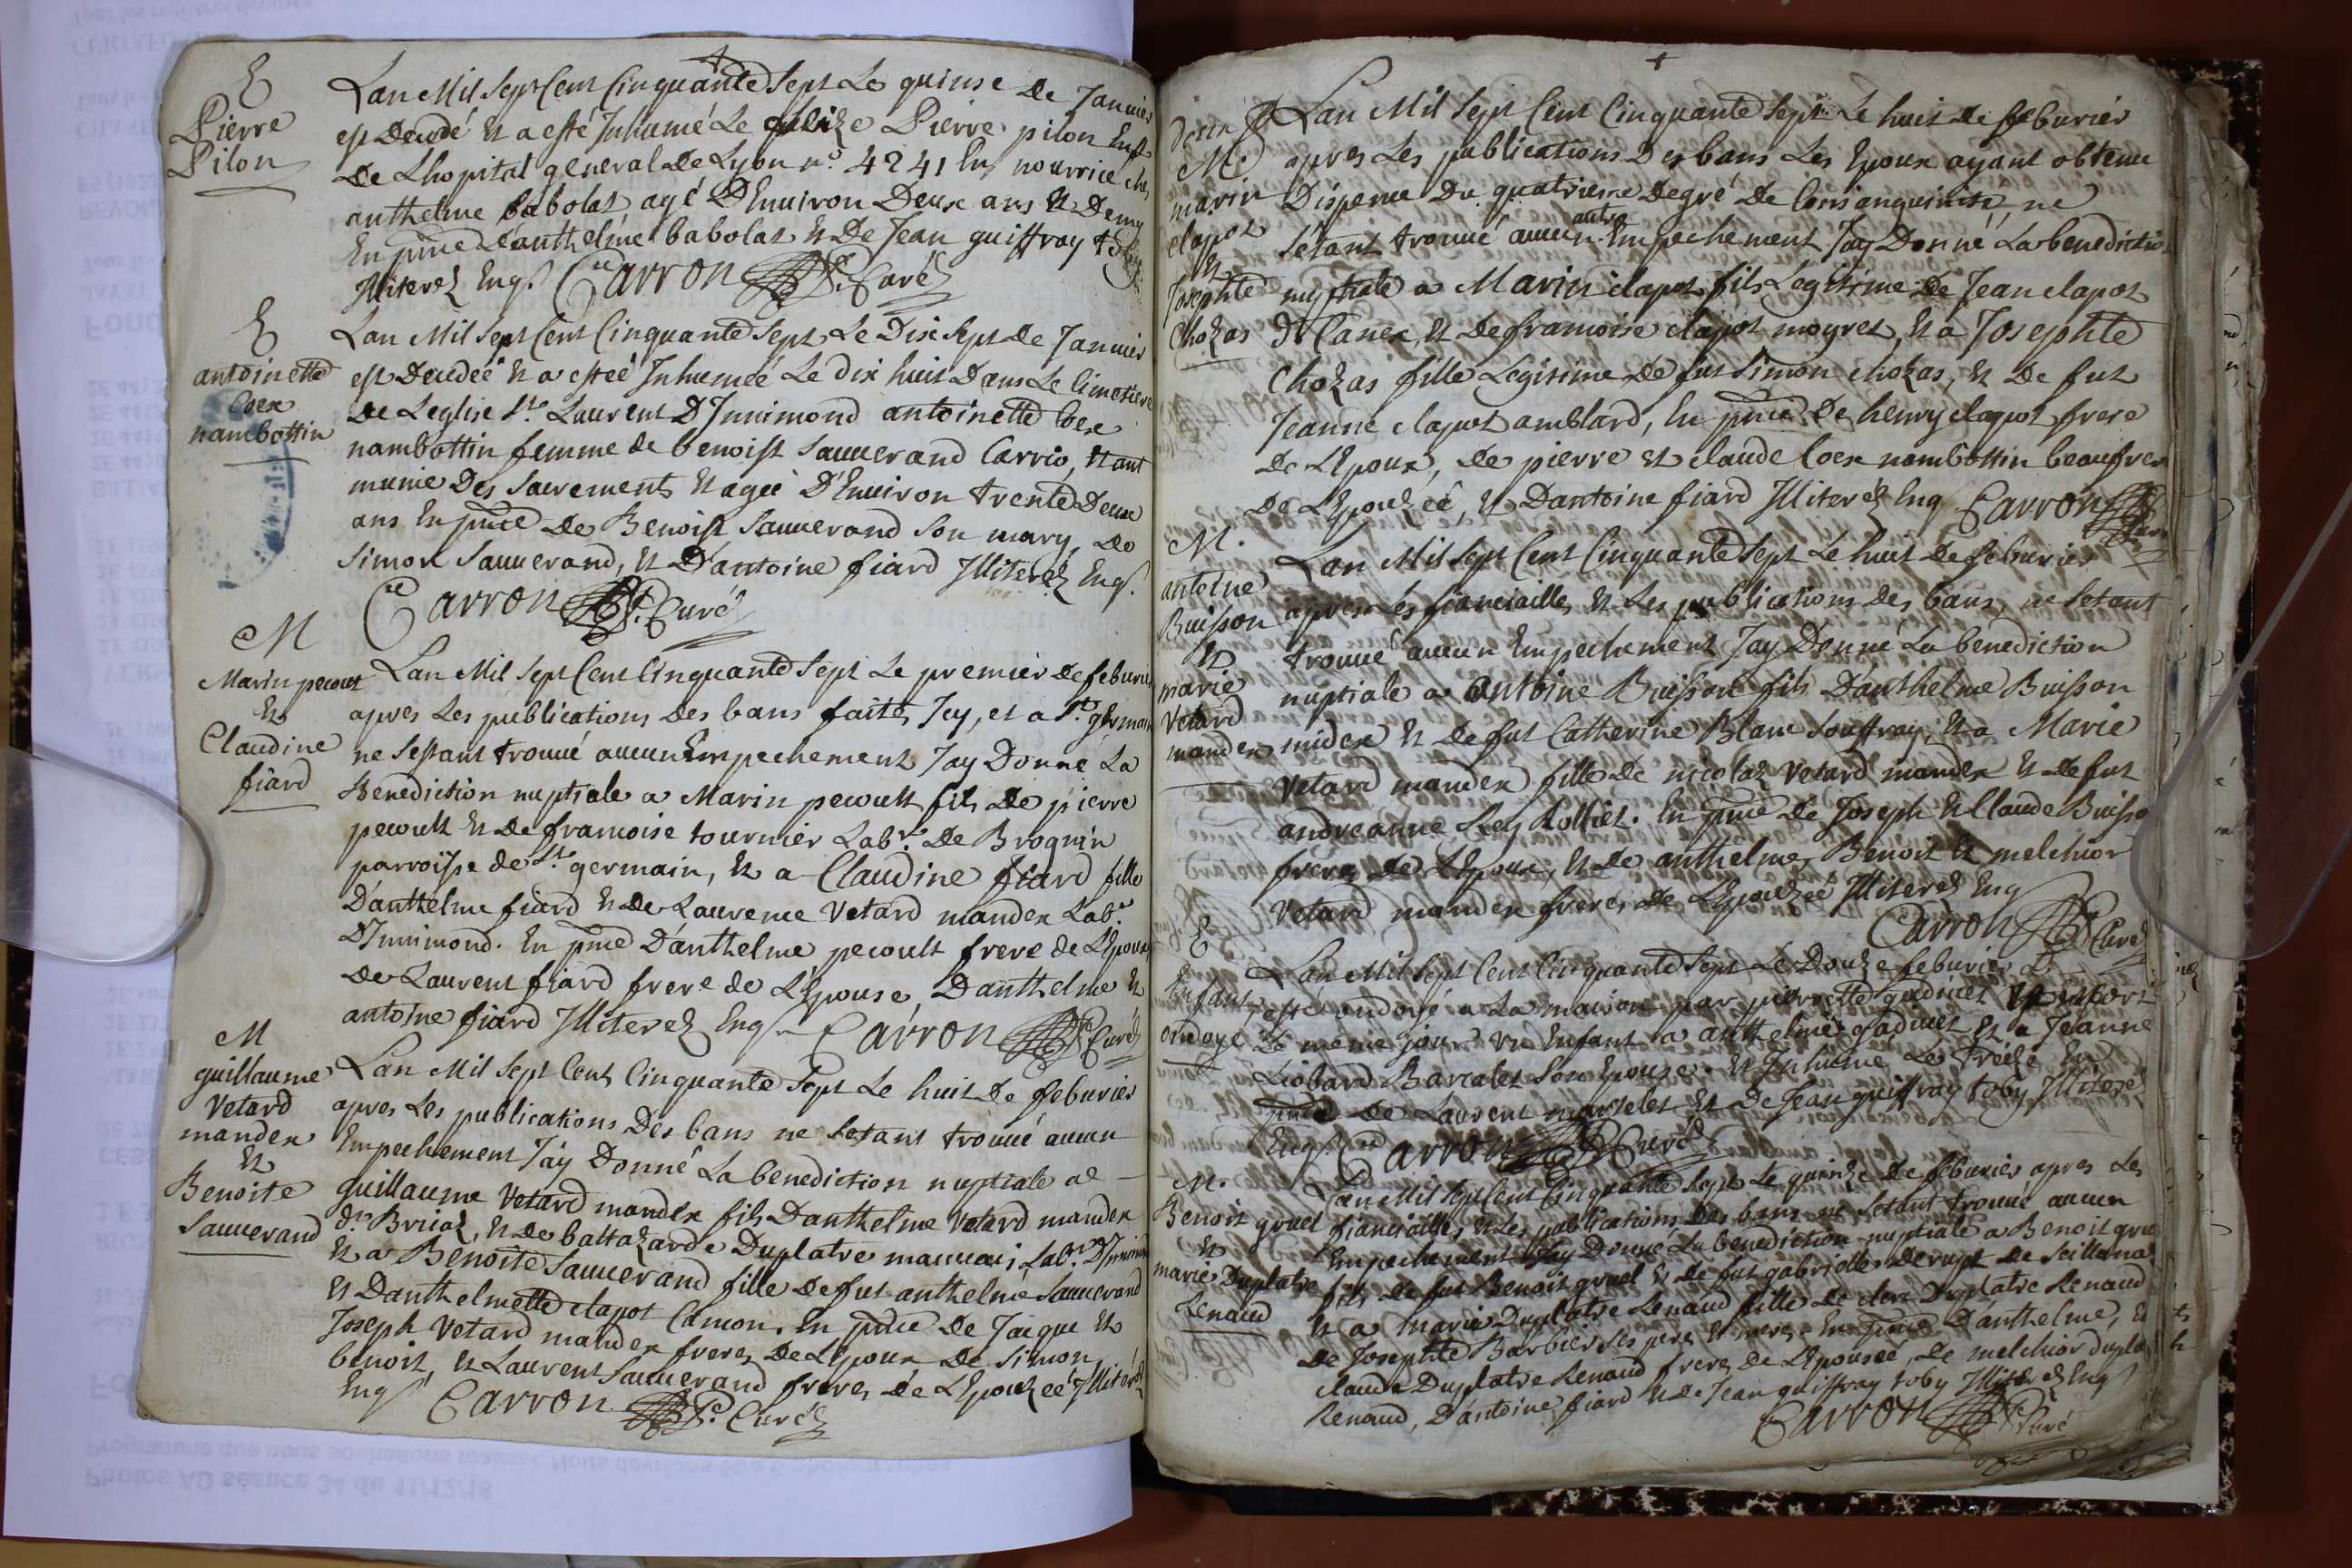 E
Pierre
Pilon
Lan Mil Sept Cent Cinquante Sept Le quinse De Januier
est Decedé et a esté Inhumé Le Seize Pierre pilon Enft
De Lhopital general De Lyon n.o 4241 En nourrice ches
anthelme babolat agé D'Enuiron Deux ans et Demy
En pnce D'anthelme babolat et De Jean guiffray toby
Illiterez Enqs. Carron Pe. Curé
E
antoinette
Coex
nambottin
Lan Mil Sept Cent Cinquante Sept Le Dix Sept de Januier
est Decedée et a estée Inhumée Le dix huit Dans Le Cimetiere
De Leglise St. Laurent D'Innimond antoinette Coex
nambottin femme de benoist Sauuerand Carrio, etant
munie Des Sacrements et agée D'Enuiron trente Deux
ans En pnce De Benoist Sauuerand Son mary, de
Simon Sauuerand, et D'antoine fiard Illiterez Enqs.
Carron Pe. Curé
M
Marin pecoult
et
Claudine
fiard
Lan Mil Sept Cent Cinquante Sept Le premier de feburier
apres Les publications Des bans faites Icy, et a St. germain
ne Sestant trouué aucun Empechement Jay Donné La
Benediction nuptiale a Marin pecoult fils De pierre
pecoult et De francoise tournier Labr. De Brognin
parroisse de St. germain, et a Claudine fiard fille
D'anthelme fiard et De Laurence Vetard mandex Labr.
D'Innimond. En pnce D'anthelme pecoult frere de LEpoux
De Laurent fiard frere de LEpouse, Danthelme et
antoine fiard Illiterez Enqs. Carron Pe. Curé
M
guillaume
Vetard
mandex
et
Benoite
Sauuerand
Lan Mil Sept Cent Cinquante Sept Le huit De feburier
apres Les publications Des bans ne Setant trouué aucun
Empechement Jay Donné La benediction nuptiale a
guillaume Vetard mandex fils Danthelme Vetard mandex
dt. Briaz, et De baltazarde Duplatre mauuais Labr. D'Innimond
et a Benoite Sauuerand fille De fut anthelme Sauuerand
et Danthelmette clapot Camon. En pnce De Jacque et
Joseph Vetard mandex freres De LEpoux De Simon
benoit, et Laurent Sauuerand freres de LEpouzée Illiterez
Enqs. Carron Pe. Curé
M.
marin
clapot
et
Josephte
Chozas
Lan Mil Sept Cent Cinquante Sept Le huit De feburier
apres Les publications Des bans Les Epoux ayant obtenu
Dispense Du quatrieme Degré De Consanguinité, ne
Setant trouué aucun autre Empechement Jay Donné La benediction
nuptiale a Marin clapot fils Legitime De Jean clapot
dt Canex, et De francoise clapot moyret, et a Josephte
Chozas fille Legitime De fut Simon chozas, et De fut
Jeanne clapot amblard, En pnce De henry clapot frere
De LEpoux, De pierre et claude Coex nambottin beaufreres
De LEpouzée, et Dantoine fiard Illiterez Enq Carron
M.
antoine
Buisson
et
marie
Vetard
mandex
Lan Mil Sept Cent Cinquante Sept Le huit De feburier
apres Les fiancialles et Les publications Des bans, ne Setant
trouué aucun Empechement Jay Donné La benediction
nuptiale a antoine Buisson fils Danthelme Buisson
midex et De fut Catherine Blanc Souffray, et a Marie
Vetard mandex fille De nicolaz Vetard mandex et De fut
andreanne Rey Rolliet. En pnce De Joseph et Claude Buisson
freres De LEpoux, et De anthelme, Benoit et melchior
Vetard mandex freres De LEpouzée Illiterez Enq
Carron Pe. Curé
E
Enfant
ondoyé
Lan Mil Sept Cent Cinquante Sept Le Douze feburier a
esté ondoyé a La maison par pierrette gadinet et mort
Le meme jour un Enfant a anthelme gadinet et a Jeanne
Liobard Barcalet Son Epouse. et Inhumé Le Treize En
pnce De Laurent marselet et De Jean guiffray toby Illiterez
Enqs. Carron Pe. Curé
M.
Benoit gruel
et
marie Duplatre
Renaud
Lan Mil Sept Cent Cinquante Sept Le quinze De feburier apres Les
fiancialles et Les publications Des bans ne Setant trouué aucun
Empechement Jay Donné La benediction nuptiale a Benoit gruel
fils De fut Benoit gruel et De fut gabrielle Derupt De Seillonna
et a marie Duplatre Renaud fille De Duplatre Renaud
De Josephte Barbier Ses pere et mere. En pnce D'anthelme, et
claude Duplatre Renaud freres De LEpousée, De melchior Duplatre
Renaud, D'antoine fiard et De Jean guiffray toby Illiterez Enqs
Carron Pe. Curé